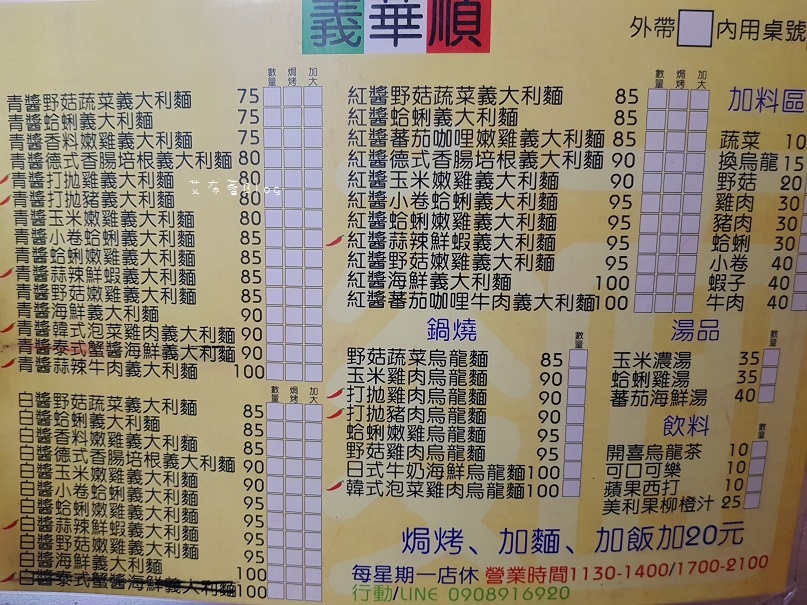 義華順
外帶 內用桌號
數量 焗烤 加大
青醬野菇蔬菜義大利麵 75
青醬蛤蜊義大利麵 75
青醬香料嫩雞義大利麵 75
青醬德式香腸培根義大利麵 80
青醬打拋雞義大利麵 80
青醬打拋豬義大利麵 80
青醬玉米嫩雞義大利麵 80
青醬小卷蛤蜊義大利麵 85
青醬蛤蜊嫩雞義大利麵 85
青醬蒜辣鮮蝦義大利麵 85
青醬野菇嫩雞義大利麵 85
青醬海鮮義大利麵 90
青醬韓式泡菜雞肉義大利麵 90
青醬泰式蟹醬海鮮義大利麵 90
青醬蒜辣牛肉義大利麵 100
數量 焗烤 加大
白醬野菇蔬菜義大利麵 85
白醬蛤蜊義大利麵 85
白醬香料嫩雞義大利麵 85
白醬德式香腸培根義大利麵 90
白醬玉米嫩雞義大利麵 90
白醬小卷蛤蜊義大利麵 95
白醬蛤蜊嫩雞義大利麵 95
白醬蒜辣鮮蝦義大利麵 95
白醬野菇嫩雞義大利麵 95
白醬海鮮義大利麵 100
白醬泰式蟹醬海鮮義大利麵 100
數量 焗烤 加大
紅醬野菇蔬菜義大利麵 85
紅醬蛤蜊義大利麵 85
紅醬蕃茄咖哩嫩雞義大利麵 85
紅醬德式香腸培根義大利麵 90
紅醬玉米嫩雞義大利麵 90
紅醬小卷蛤蜊義大利麵 95
紅醬蛤蜊嫩雞義大利麵 95
紅醬蒜辣鮮蝦義大利麵 95
紅醬野菇嫩雞義大利麵 95
紅醬海鮮義大利麵 100
紅醬蕃茄咖哩牛肉義大利麵 100
加料區
蔬菜 10
換烏龍 15
野菇 20
雞肉 30
豬肉 30
蛤蜊 30
小卷 40
蝦子 40
牛肉 40
鍋燒
數量
野菇蔬菜烏龍麵 85
玉米雞肉烏龍麵 90
打拋雞肉烏龍麵 90
打拋豬肉烏龍麵 90
蛤蜊嫩雞烏龍麵 95
野菇雞肉烏龍麵 95
日式牛奶海鮮烏龍麵 100
韓式泡菜雞肉烏龍麵 100
湯品
數量
玉米濃湯 35
蛤蜊雞湯 35
蕃茄海鮮湯 40
飲料
數量
開喜烏龍茶 10
可口可樂 10
蘋果西打 10
美利果柳橙汁 25
焗烤、加麵、加飯加20元
每星期一店休 營業時間1130-1400/1700-2100
行動/LINE 0908916920